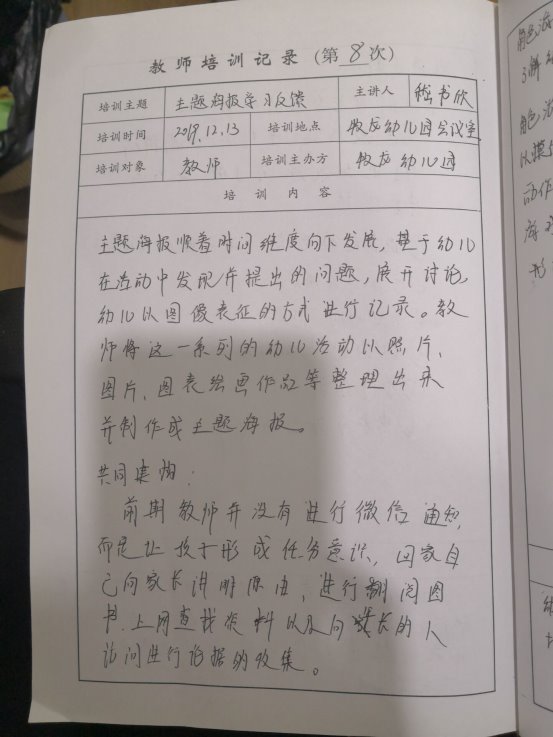 教师培训记录（第 8 次）
培训主题 主题海报学习反馈 主讲人 嵇书欣
培训时间 2019.12.13 培训地点 牧龙幼儿园会议室
培训对象 教师 培训主办方 牧龙幼儿园
培训内容
主题海报顺着时间维度向下发展，基于幼儿
在活动中发现并提出的问题，展开讨论，
幼儿以图像表征的方式进行记录。教
师将这一系列的幼儿活动以照片、
图片、图表绘画作品等整理出来
并制作成主题海报。
共同建构：
前期教师并没有进行微信通知，
而是让孩子形成任务意识，回家自
己向家长讲明原由，进行翻阅图
书、上网查找资料以及向年长的人
访问进行论据的收集。
角色
以
动作
海
形